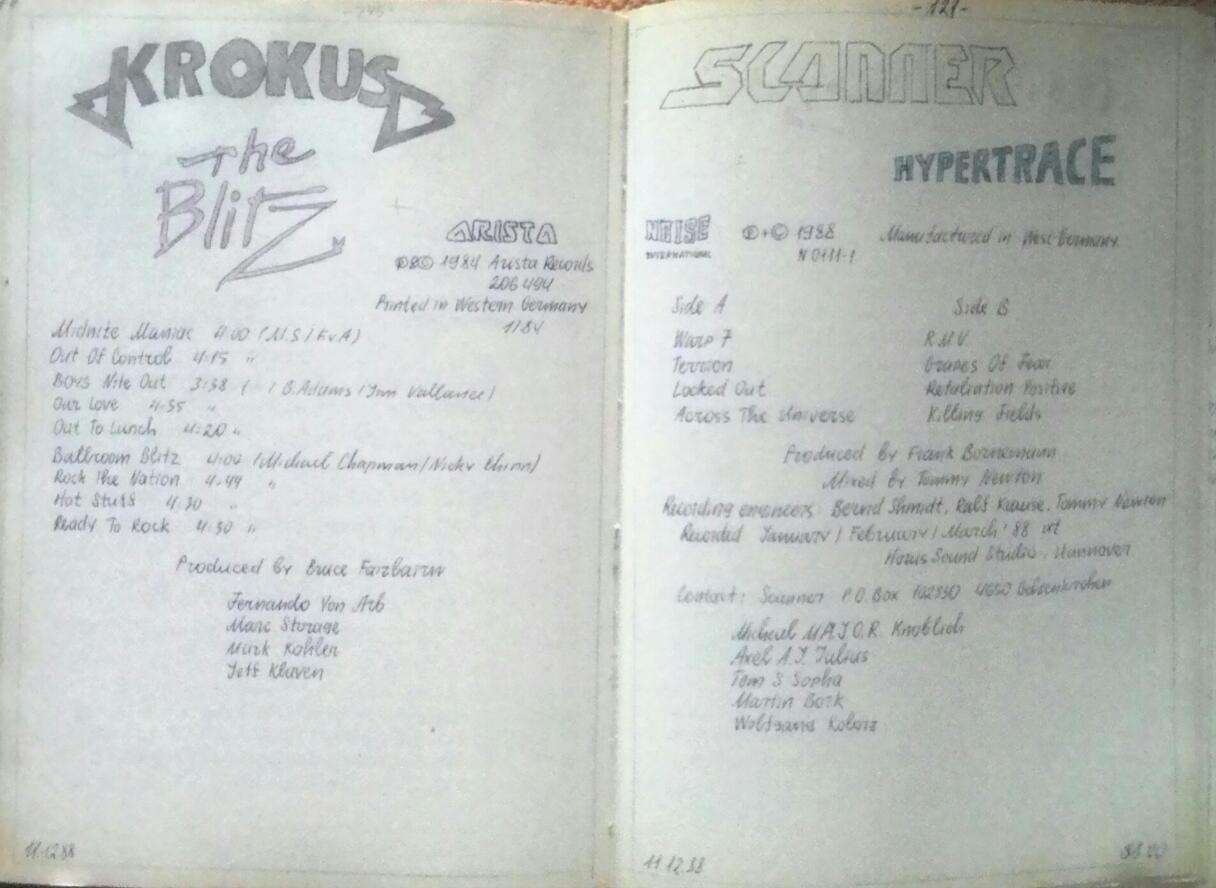 KROKUS
The
Blitz
ARISTA
℗&© 1984 Arista Records
206 494
Printed in Western Germany
1/84
Midnite Maniac 4:00 (M.S / F.v.A)
Out Of Control 4:15 "
Boys Nite Out 3:38 ( / B.Adams / Jim Vallance)
Our Love 4:35 "
Out To Lunch 4:20 "
Ballroom Blitz 4:00 (Michael Chapman / Nicky Chinn)
Rock The Nation 4:44 "
Hot Stuff 4:30 "
Ready To Rock 4:30 "
Produced by Bruce Fairbairn
Fernando Von Arb
Marc Storace
Mark Kohler
Jeff Klaven
11.12.88
- 121 -
SCANNER
HYPERTRACE
NOISE
INTERNATIONAL
℗+© 1988
N 0111-1
Manufactured in West Germany
Side A
Side B
Warp 7
R.M.V.
Terrion
Grapes Of Fear
Locked Out
Retaliation Positive
Across The Universe
Killing Fields
Produced by Frank Bornemann
Mixed by Tommy Newton
Recording engineers: Bernd Shmidt, Ralf Krause, Tommy Newton
Recorded January / February / March '88 at
Horus Sound Studio, Hannover
Contact: Scanner P.O. Box 4650 Gelsenkirchen
Michael M.A.J.O.R. Knoblich
Axel A.J. Julius
Tom S Sopha
Martin Bork
Wolfgang Kolorz
11.12.88